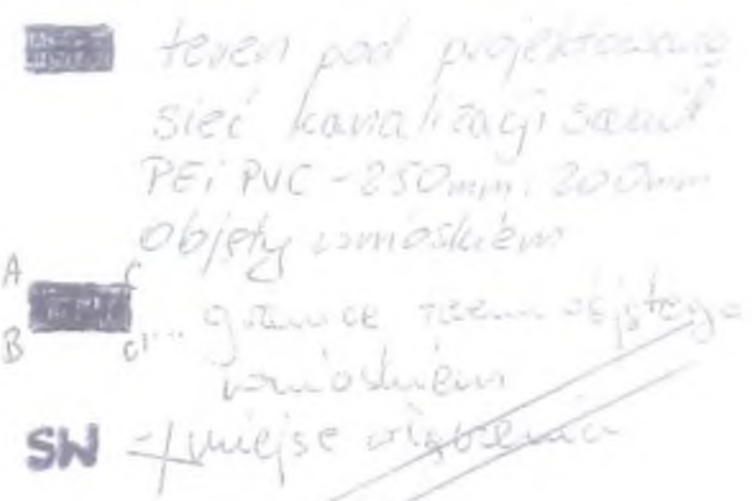 teren pod projektowaną
sieć kanalizacji sanit
PE i PVC - 250mm i 200mm
objęty wnioskiem
A C
B
granice terenu objętego
wnioskiem
SW - miejsce włączenia